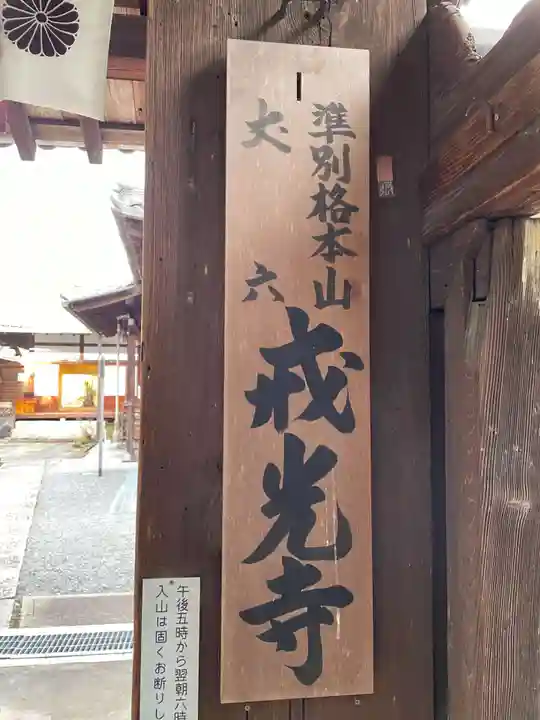 準別格本山
丈六
戒光寺
午後五時から翌朝六時
入山は固くお断りし